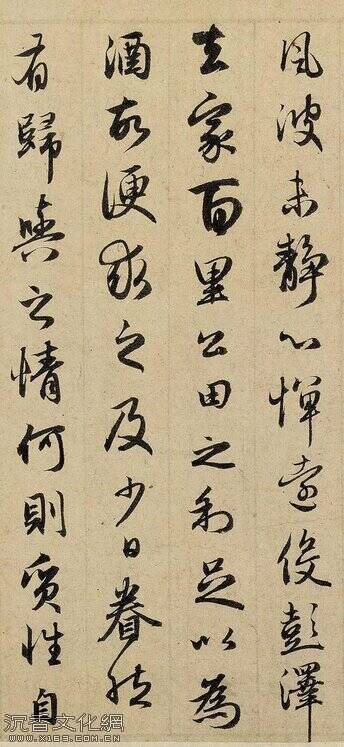 風波未静心憚遠役彭澤
去家百里公田之利足以為
酒故便求之及少日眷然
有歸與之情何則質性自
沉香文化網
www.x163.com.cn